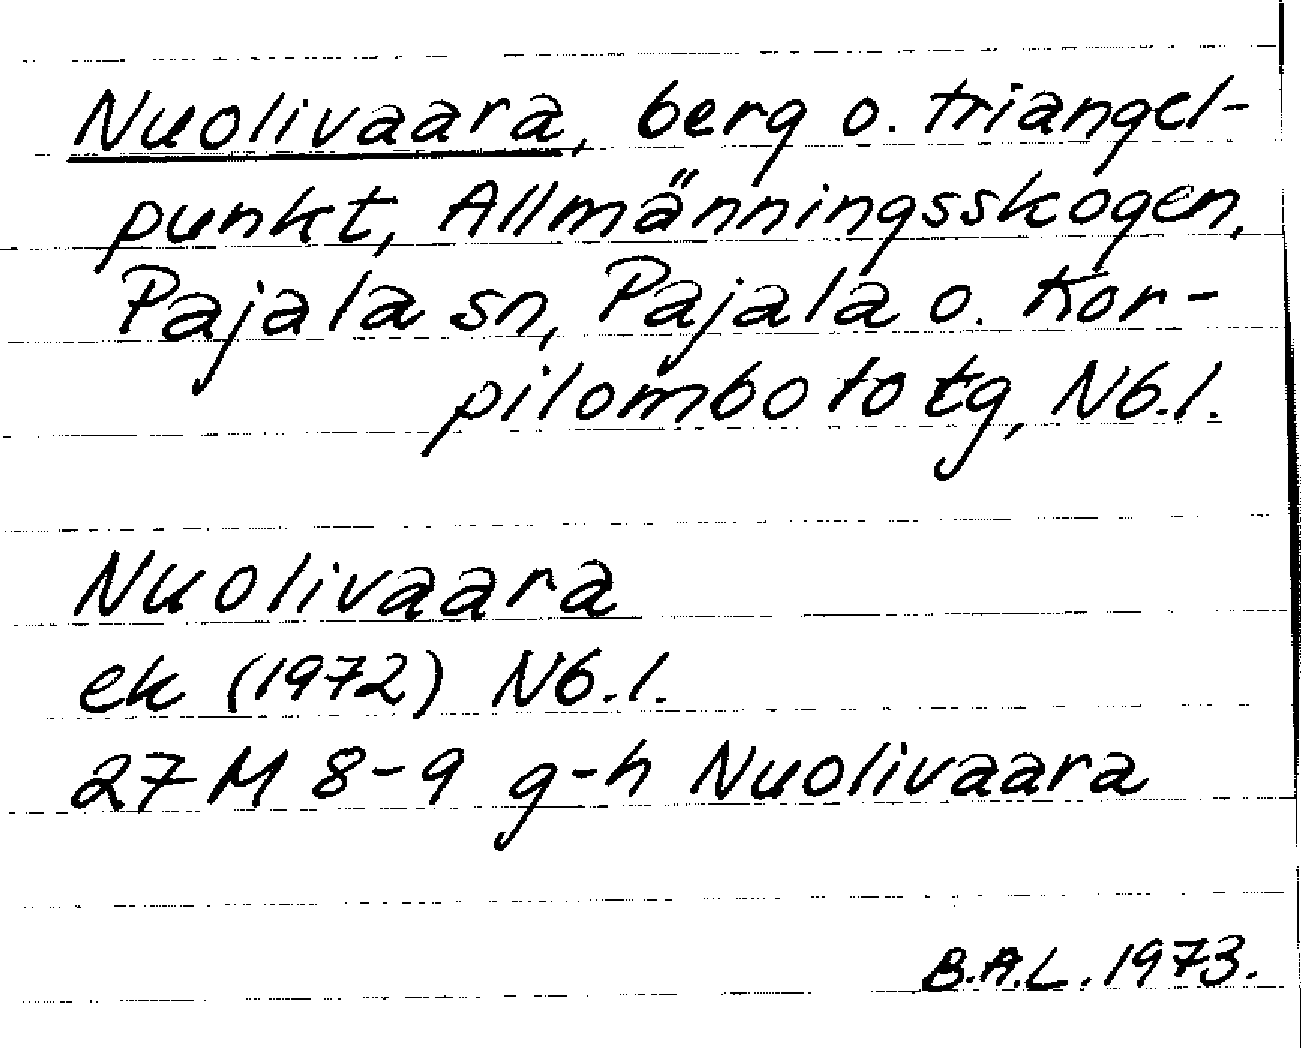 Nuolivaara, berg o. triangel-
punkt, Allmänningsskogen,
Pajala sn, Pajala o. Kor-
pilombolo tg, Nb.l.
Nuolivaara
ek (1972) Nb.l.
27 M 8-9 g-h Nuolivaara
B.A.L. 1973.